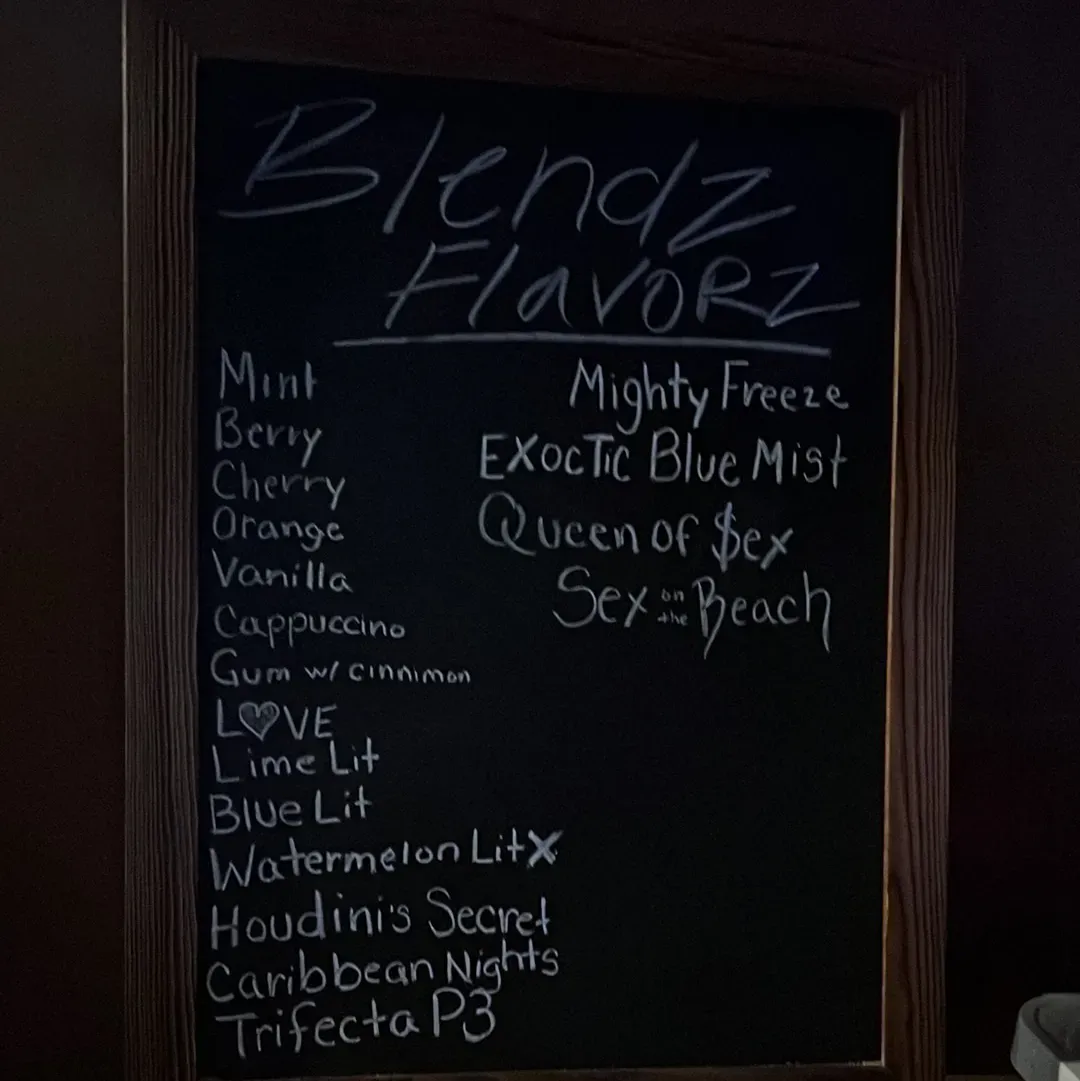 Blendz
FlavoRz
Mint
Berry
Cherry
Orange
Vanilla
Cappuccino
Gum w/ cinnimon
L♥VE
Lime Lit
Blue Lit
Watermelon Litx
Houdini's Secret
Caribbean Nights
Trifecta P3
Mighty Freeze
EXocTic Blue Mist
Queen of $ex
Sex on the Beach